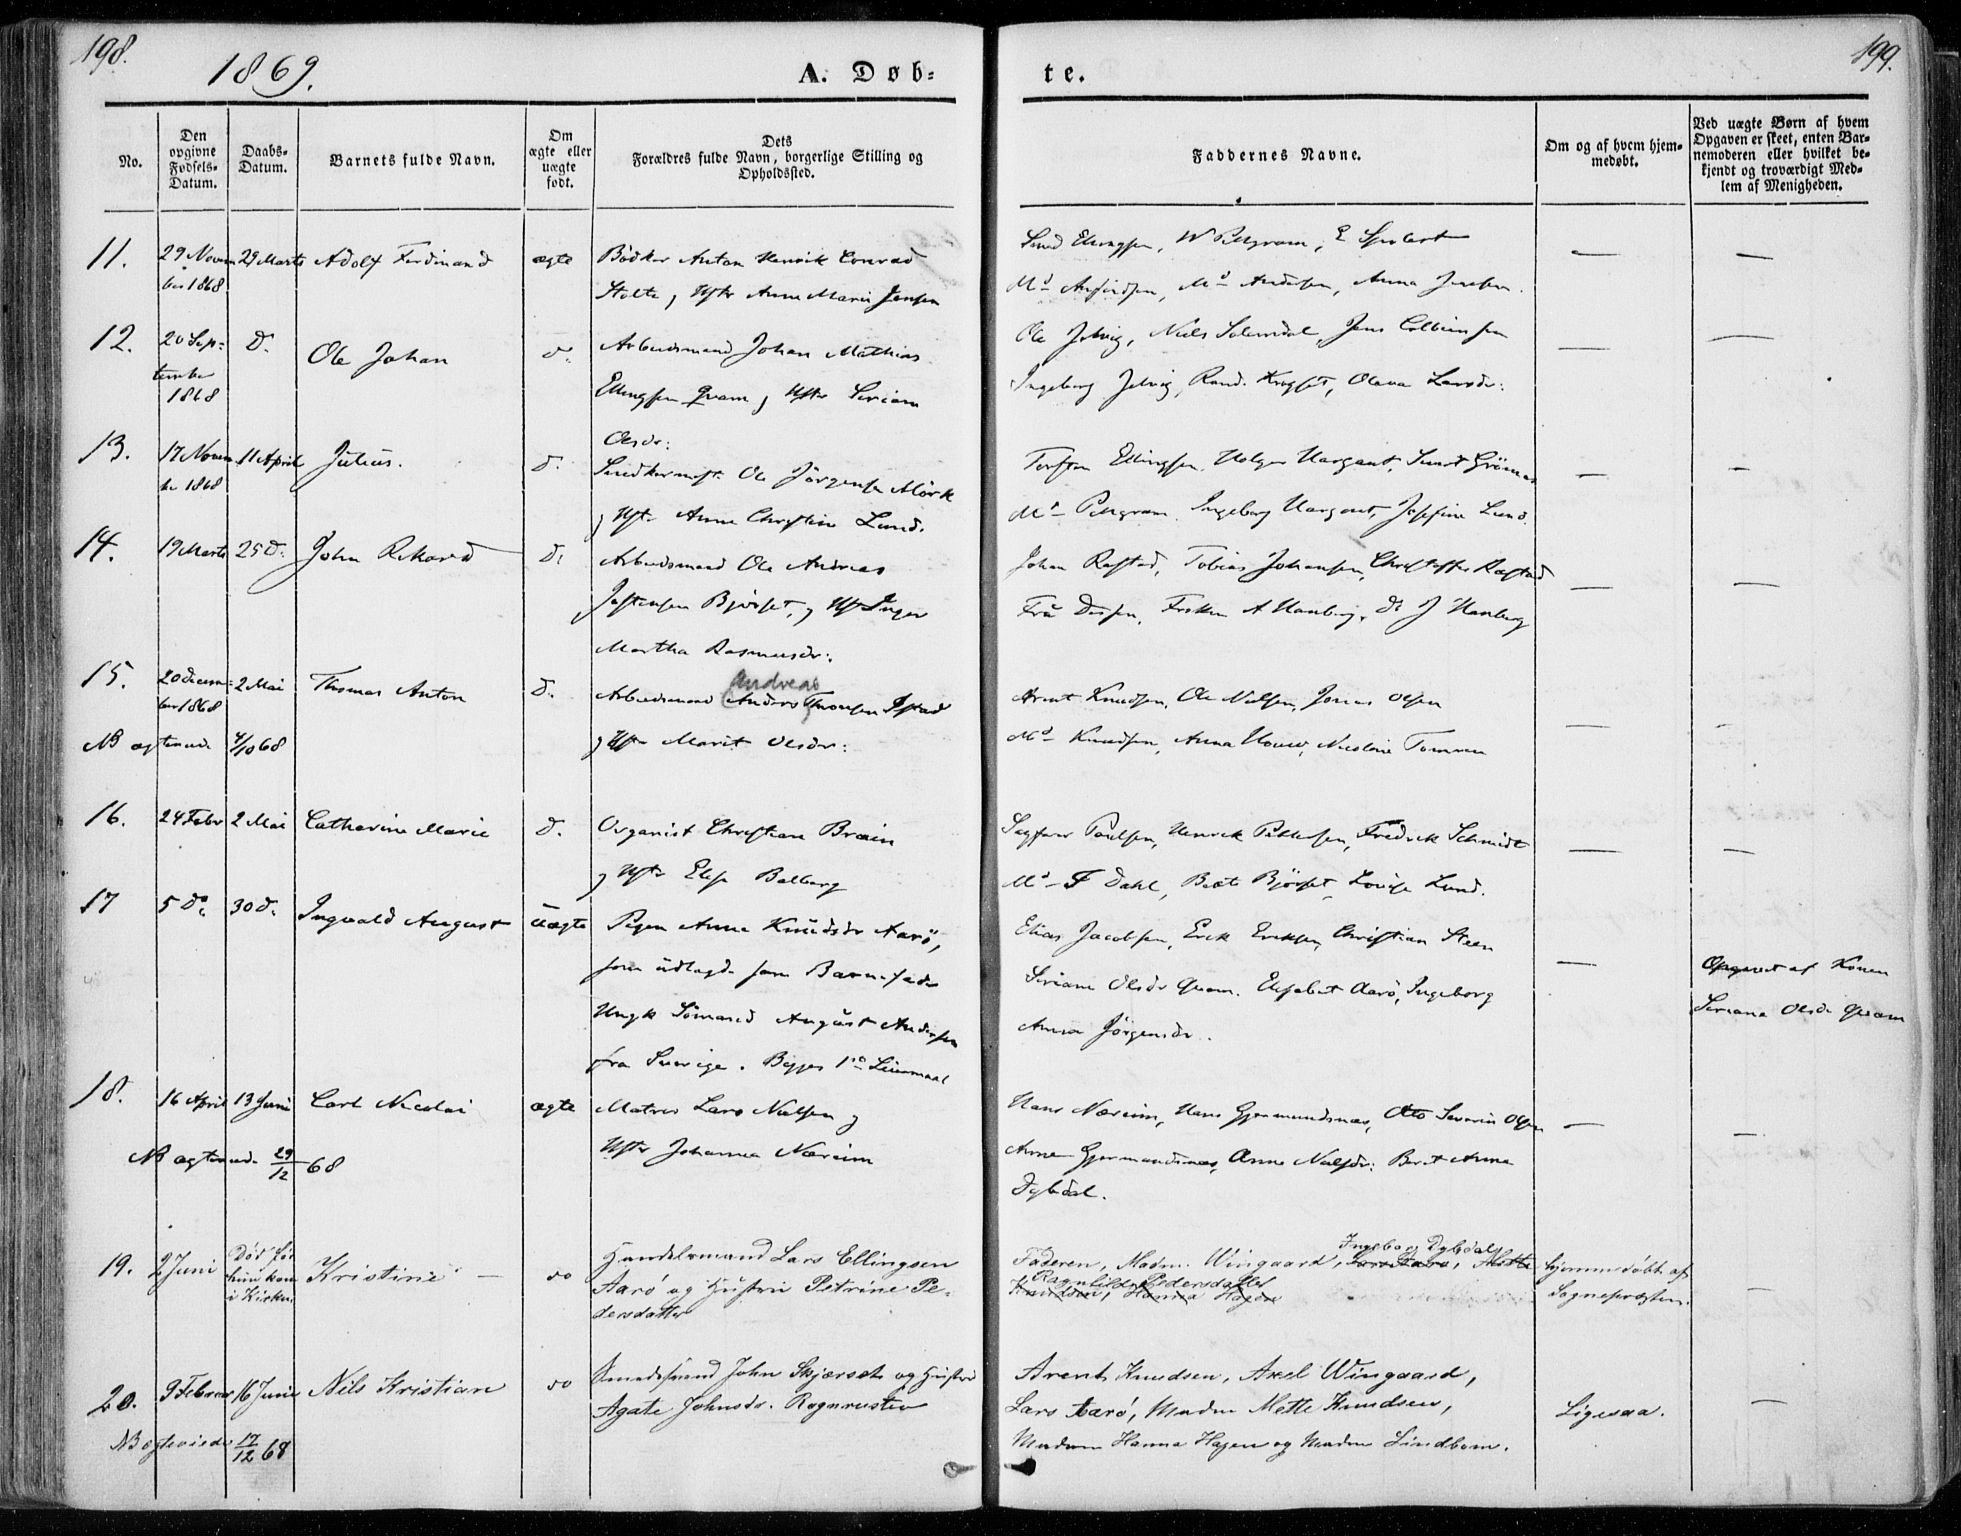 198.
1869.
A. Døb=
te.
199.
No.
Den opgivne Fødsels-Datum.
Daabs-Datum.
Barnets fulde Navn.
Om ægte eller uægte født.
Dets Forældres fulde Navn, borgerlige Stilling og Opholdssted.
Faddernes Navne.
Om og af hvem hjem-medøbt.
Ved uægte Børn af hvem Opgaven er skeet, enten Bar-nemoderen eller hvilket be-kjendt og troværdigt Med-lem af Menigheden.
11.
29 Novem
ber 1868
29 Marts
Adolf Ferdinand
ægte
Bødker Anton Henrik Conrad
Stolte, Hstr Anne Marie Jensen
Ellingsen, W Pettgram, E
Md Md Andersen, Anna Jensen
—
—
12.
20 Sep=
tember
1868
D.
Ole Johan
d.
Arbeidsmand Johan Mathias
Ellingsen Qvam, Hstr Seriane
Olsdr:
Ole Jelvig, Niels Solemdal, Jens Colbeinsen
Ingeborg Jelvig, Olava Larsdr:
—
—
13.
17 Novem
ber 1868
11 April
Julius.
d.
Snedkermstr. Ole Jørgensen Mørk
g Hstr Anne Christine Lund.
Torsten Ellingsen, Holger Hargaut,
Md Pettgram, Ingeborg Hargaut, Josefine Lund.
—
—
14.
19 Marts
25 D.
John Rikard
d:
Arbeidsmand Ole Andreas
Jostensen Bjørset, g Hst Inger
Martha Rasmusdr:
Johan Røstad, Tobias Johansen, Christoffer Røstad
Fru Frøken A Hanberg, Do J Hanberg
—
—
15.
20 Decem=
ber 1868
2 Mai
Thomas Anton
d.
Andreas
Arbeidsmand (Anders) Thomsen Istad
g Hstr Marit Olsdr:
NB ægteviede 4/10 68
Arent Knudsen, Ole Nielsen, Jonas Olsen
Md Knudsen, Anna Nicoline Tommen
—
—
16.
24 Febr
2 Mai
Catharine Marie
d.
Organist Christian Brain
g Hstr Elise Balberg
Poulsen, Henrik Pettersen, Fredrik Schmidt
Md F Dahl, Berit Bjørset, Lovise Lund.
—
—
17
5 Do.
30 D.
Ingvald August
uægte
Pigen Anne Knudsdr Aarø,
som udlagde som Barnefader
Ungk Sømand August Andersen
fra Sverige. Begges 1ste Leiermaal
Elias Jacobsen, Erik Eriksen, Christian Steen
Seriane Olsdr Qvam. Elisabet Aarø, Ingeborg
Anna Jørgensdr.
—
Opgivet af Konen
Seriane Olsdr Qvam
18.
16 April
13 Juni
Carl Nicolai
ægte
Matros Lars Nielsen g
Hstr Johanna Næreim
NB ægteviede 29/12 68
Hans Næreim, Hans Gjermundsnæs, Otto Severin Olsen
Anne Gjermundsnæs, Anne Nielsdr: Berit Anna
Dybdal.
—
—
19.
2 Juni
Død før
hun kom
i Kirken
Kristine —
do
Handelsmand Lars Ellingsen
Aarø og Hustru Petrine Pe-
dersdatter
Ingeborg Dybdal
Faderen, Madm. Wingaard, Lars Aarø, Mette
Ragnhild Pedersdatter
Knudsen, Hanna Hagen
hjemmedøbt af
Sognepræsten.
—
20.
9 Februar
16 Juni
Nils Kristian
do
John Skjærset og Hustru
Agate Johnsdr.
NB ægteviede 17/12 68
Arent Knudsen, Axel Wingaard,
Lars Aarø, Madm Mette Knudsen,
Madam Hanna Hagen og Madm Lindbom.
Ligesaa.
—